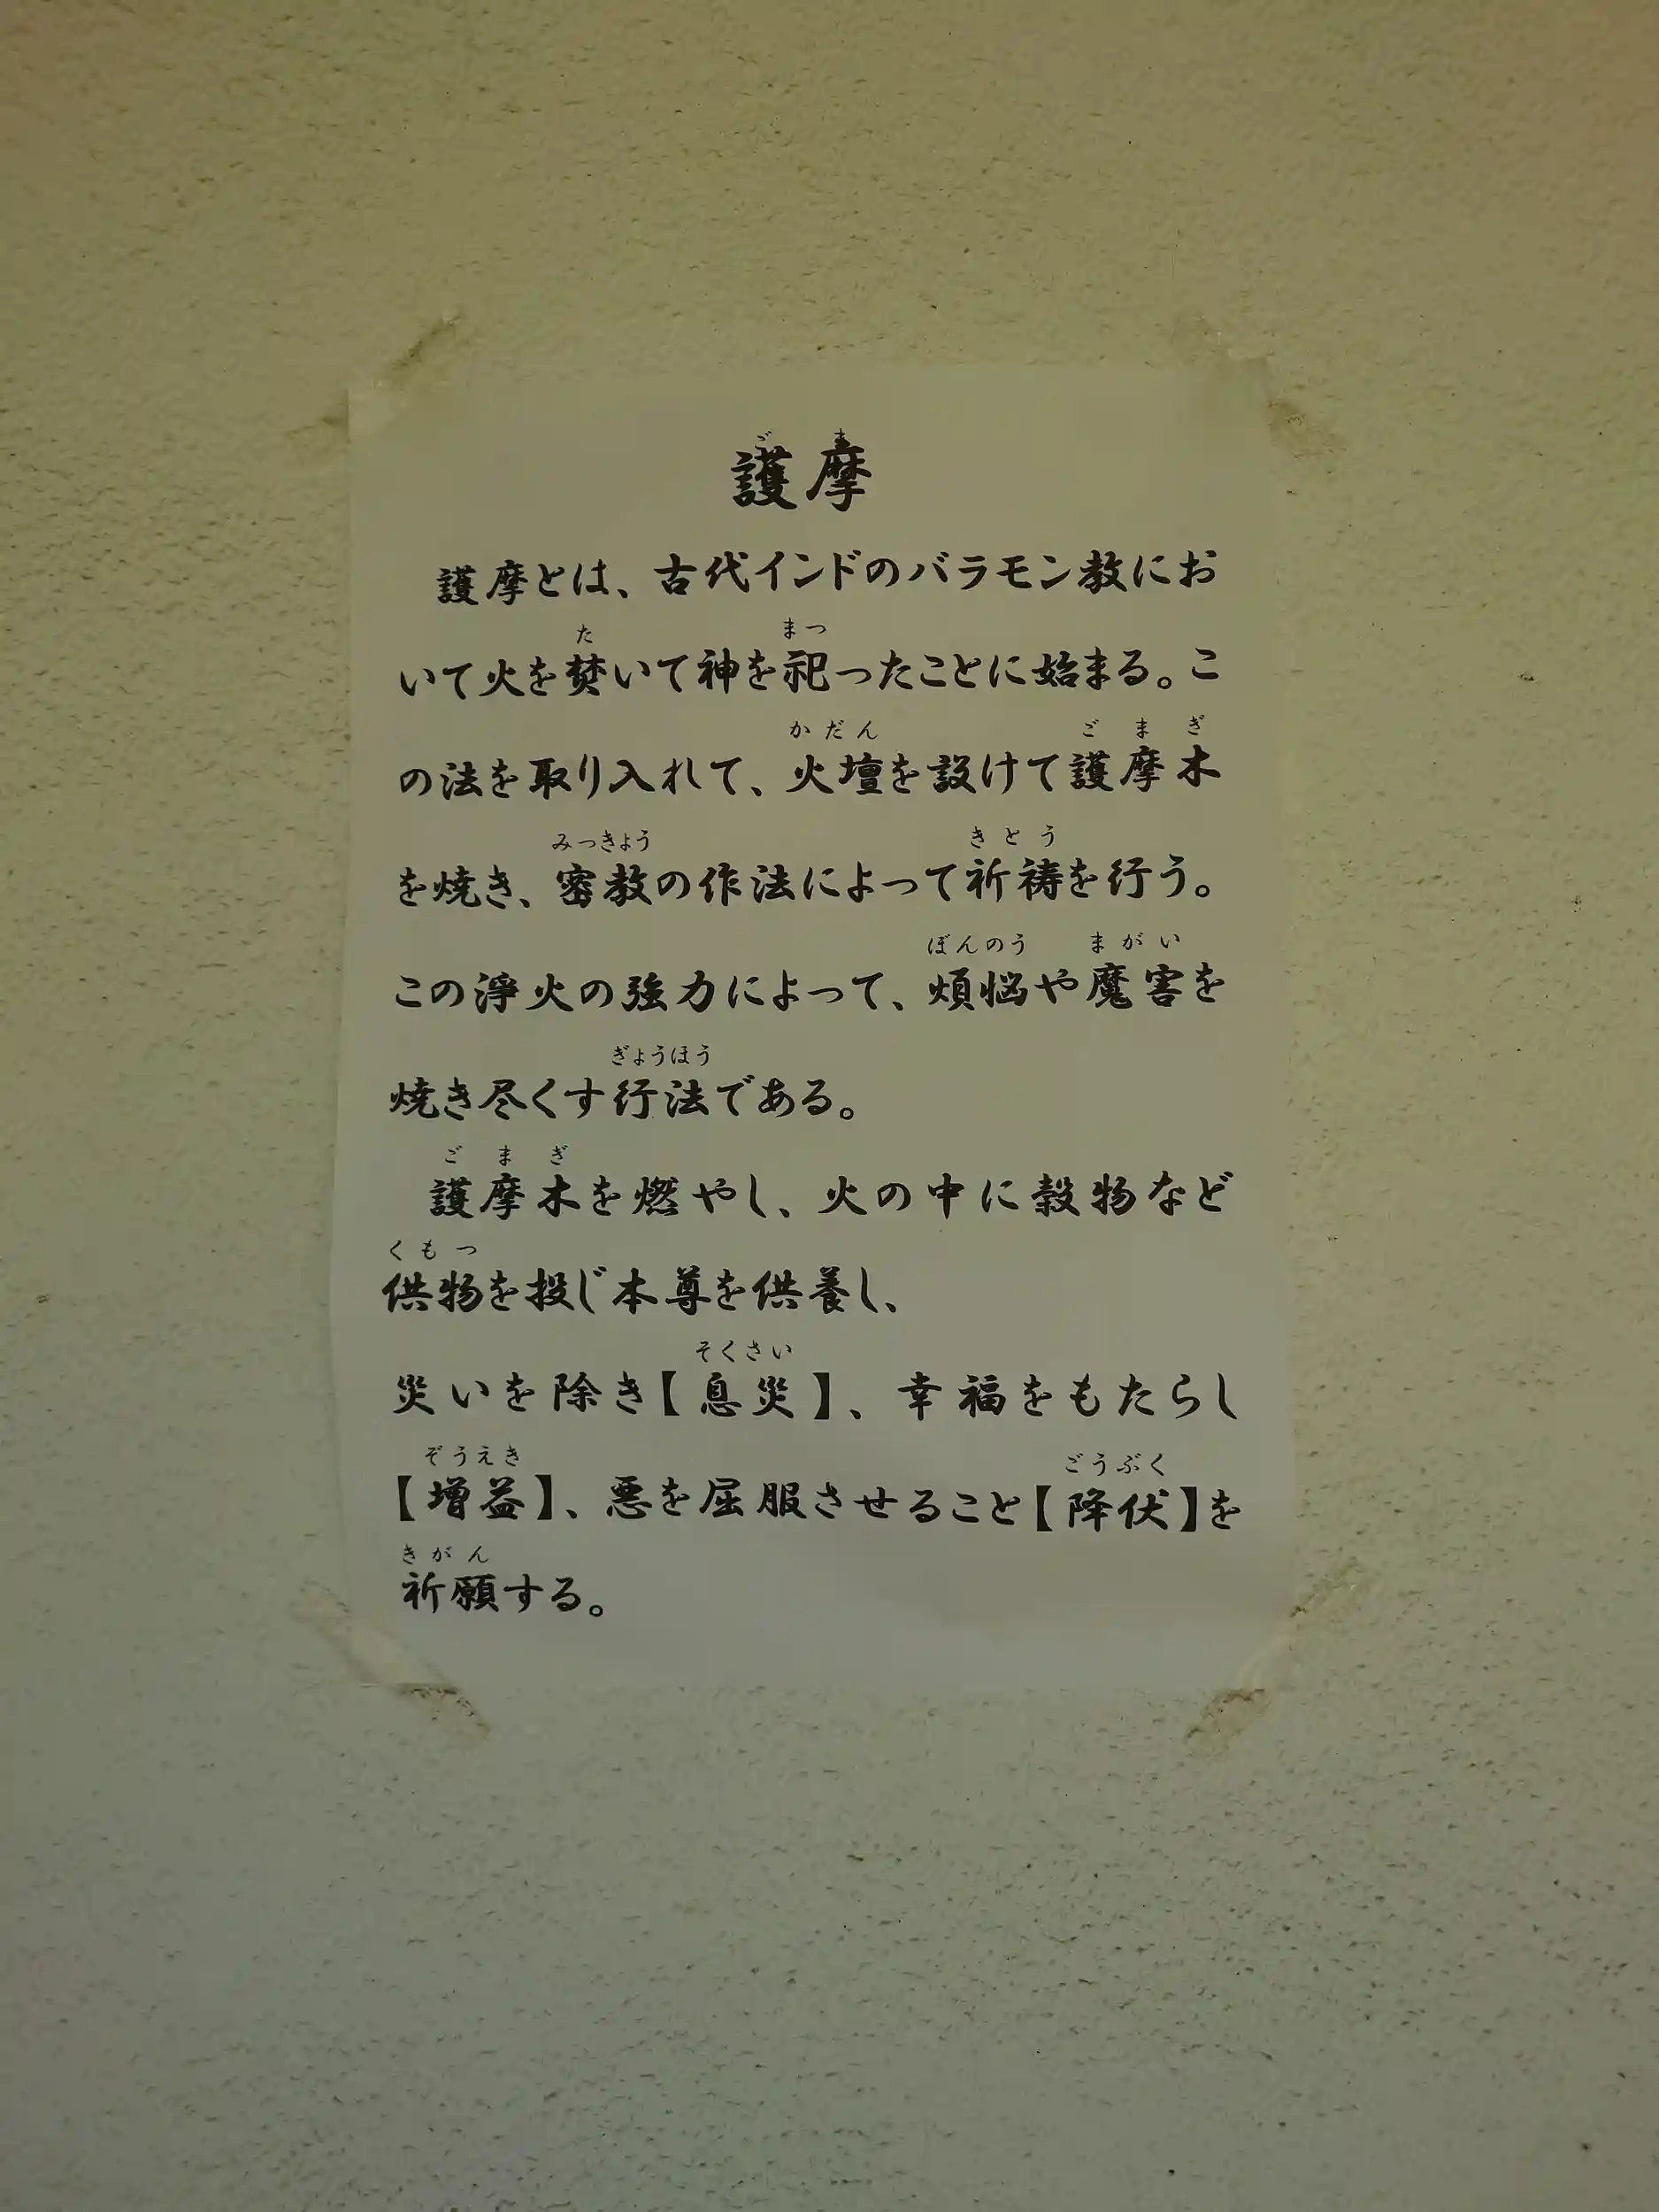 ごま
護摩
護摩とは、古代インドのバラモン教にお
た まつ
いて火を焚いて神を祀ったことに始まる。こ
かだん ごまぎ
の法を取り入れて、火壇を設けて護摩木
みっきょう きとう
を焼き、密教の作法によって祈祷を行う。
ぼんのう まがい
この淨火の強力によって、煩悩や魔害を
ぎょうほう
焼き尽くす行法である。
ごまぎ
護摩木を燃やし、火の中に穀物など
くもつ
供物を投じ本尊を供養し、
そくさい
災いを除き【息災】、幸福をもたらし
ぞうえき ごうぶく
【増益】、悪を屈服させること【降伏】を
きがん
祈願する。